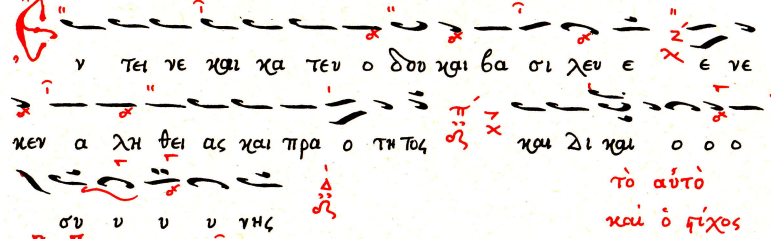 Ε ν τει νε και κα τευ ο δου και βα σι λευ ε ε νε
κεν α λη θει ας και πρα ο τη τος και δι και ο ο ο
συ υ υ υ νης
τὸ αὐτὸ
καὶ ὁ στίχος